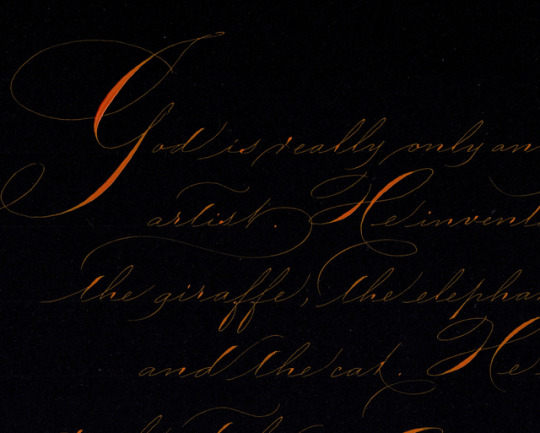 God is really only an
artist. He invent
the giraffe, the elepha
and the cat. He